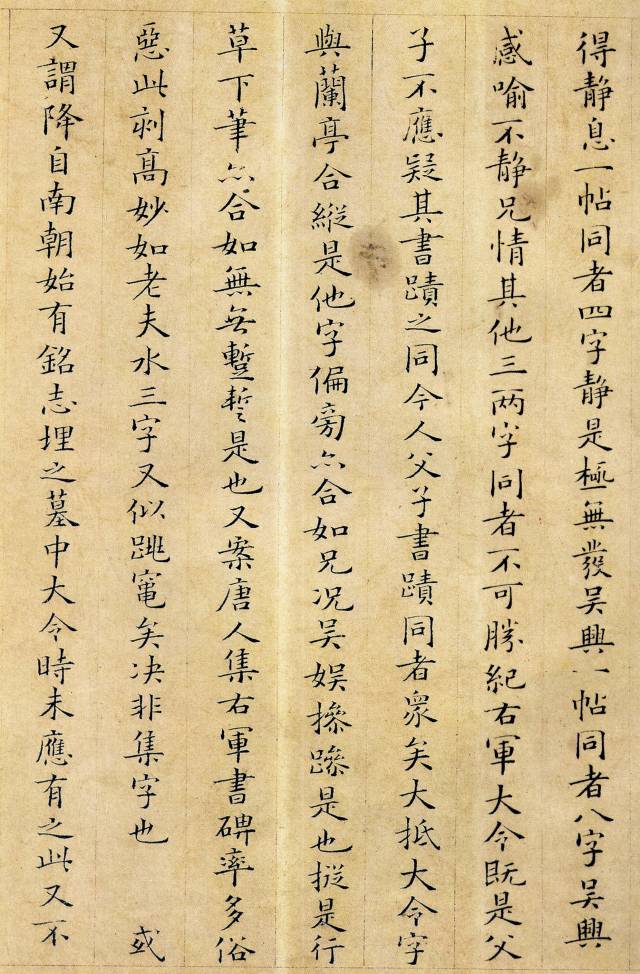 得静息一帖同者四字静是極無發吴興一帖同者八字吴興
感喻不静兄情其他三兩字同者不可勝紀右軍大令既是父
子不應疑其書蹟之同今人父子書蹟同者衆矣大抵大令字
與蘭亭合縱是他字偏旁亦合如兄况吴娱摻蹨是也挺是行
草下筆亦合如無無蹔蹔是也又案唐人集右軍書碑率多俗
惡此刻高妙如老夫水三字又似跳竃矣决非集字也 或
又謂降自南朝始有銘志埋之墓中大令時未應有之此又不